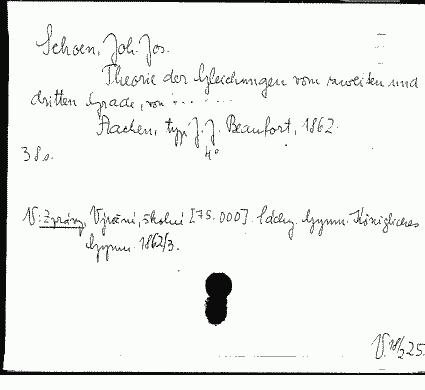 Schoen, Joh. Jos.
Theorie der Gleichungen vom zweiten und
dritten Grade, von .......
Aachen, typ. J. J. Beaufort, 1862.
38 s. 4°
V: Zprávy Výroční, školní [75.000]. Gymn. Königliches
Gymn. 1862/3.